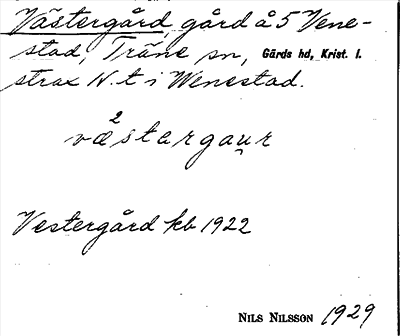 Västergård, gård å 5 Vene-
stad, Träne sn, Gärds hd, Krist. l.
strax N. t. i Wenestad.
2
væstargau̯r
Vestergård kb 1922
NILS NILSSON 1929